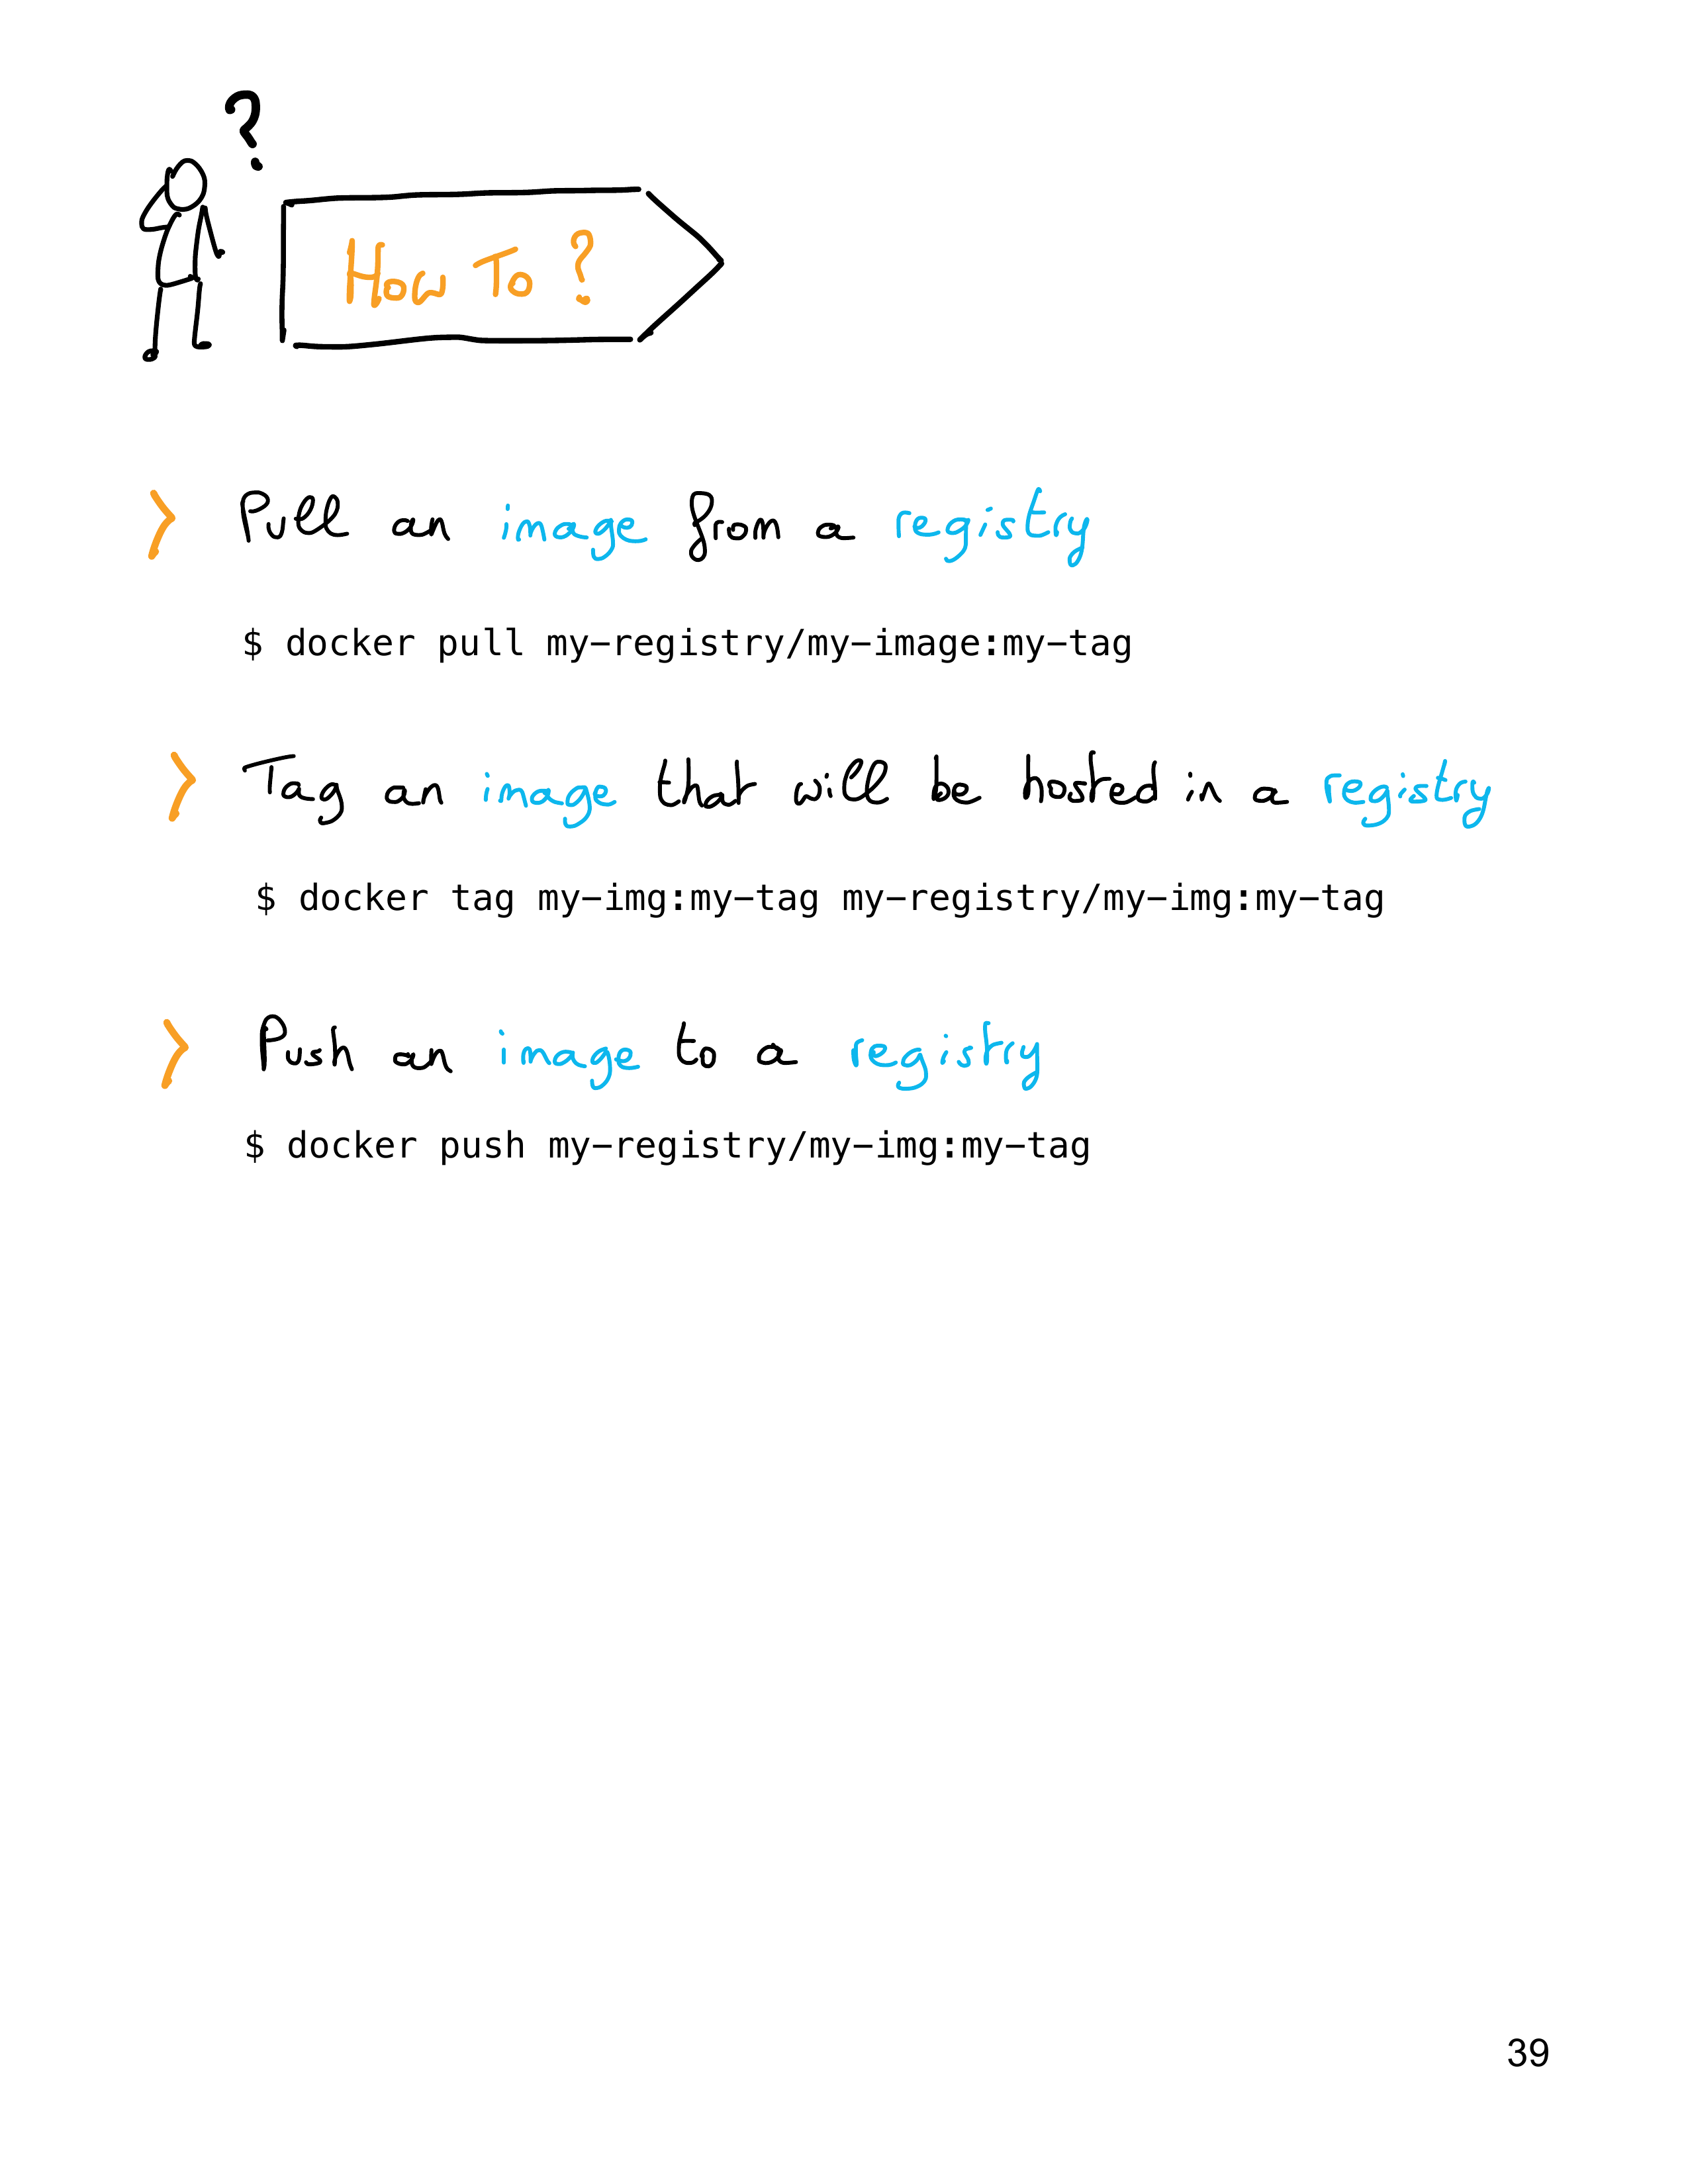 ?
How To ?
> Pull an image from a registry
$ docker pull my-registry/my-image:my-tag
> Tag an image that will be hosted in a registry
$ docker tag my-img:my-tag my-registry/my-img:my-tag
> Push an image to a registry
$ docker push my-registry/my-img:my-tag
39